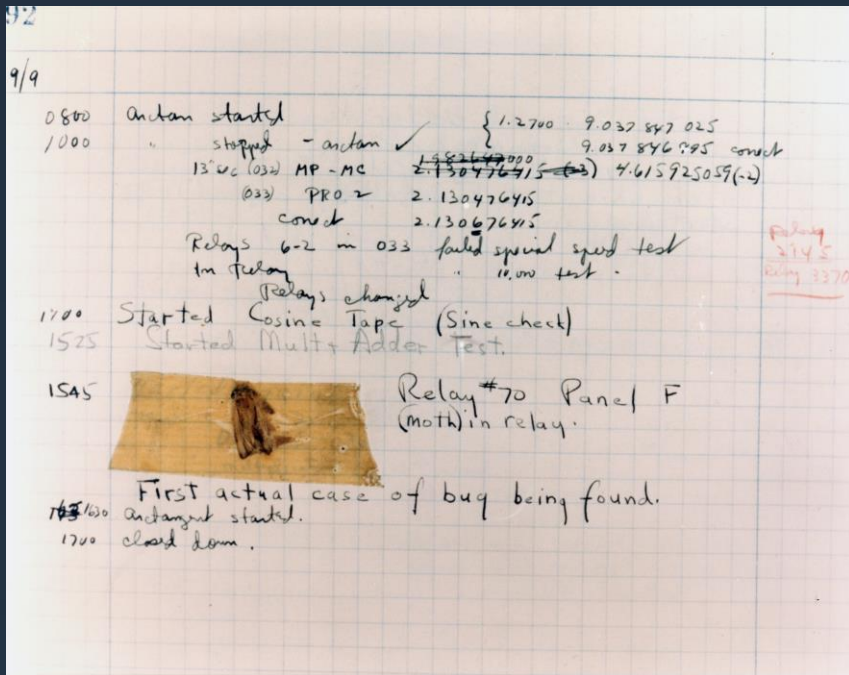 92
9/9
0800 arctan started { 1.2700 9.037 847 025
1000 " stopped - arctan ✓ 9.037 846 995 correct
13"uc (032) MP - MC 2.130476415 (-3) 4.615925059(-2)
(033) PRO 2 2.130476415
correct 2.130676415
Relays 6-2 in 033 failed special speed test
In Relay " 10,000 test .
Relays changed
Relay
2145
Relay 3370
1700 Started Cosine Tape (Sine check)
1525 Started Mult + Adder Test.
1545 Relay #70 Panel F
(moth) in relay.
First actual case of bug being found.
1630 arctangent started.
1700 closed down.